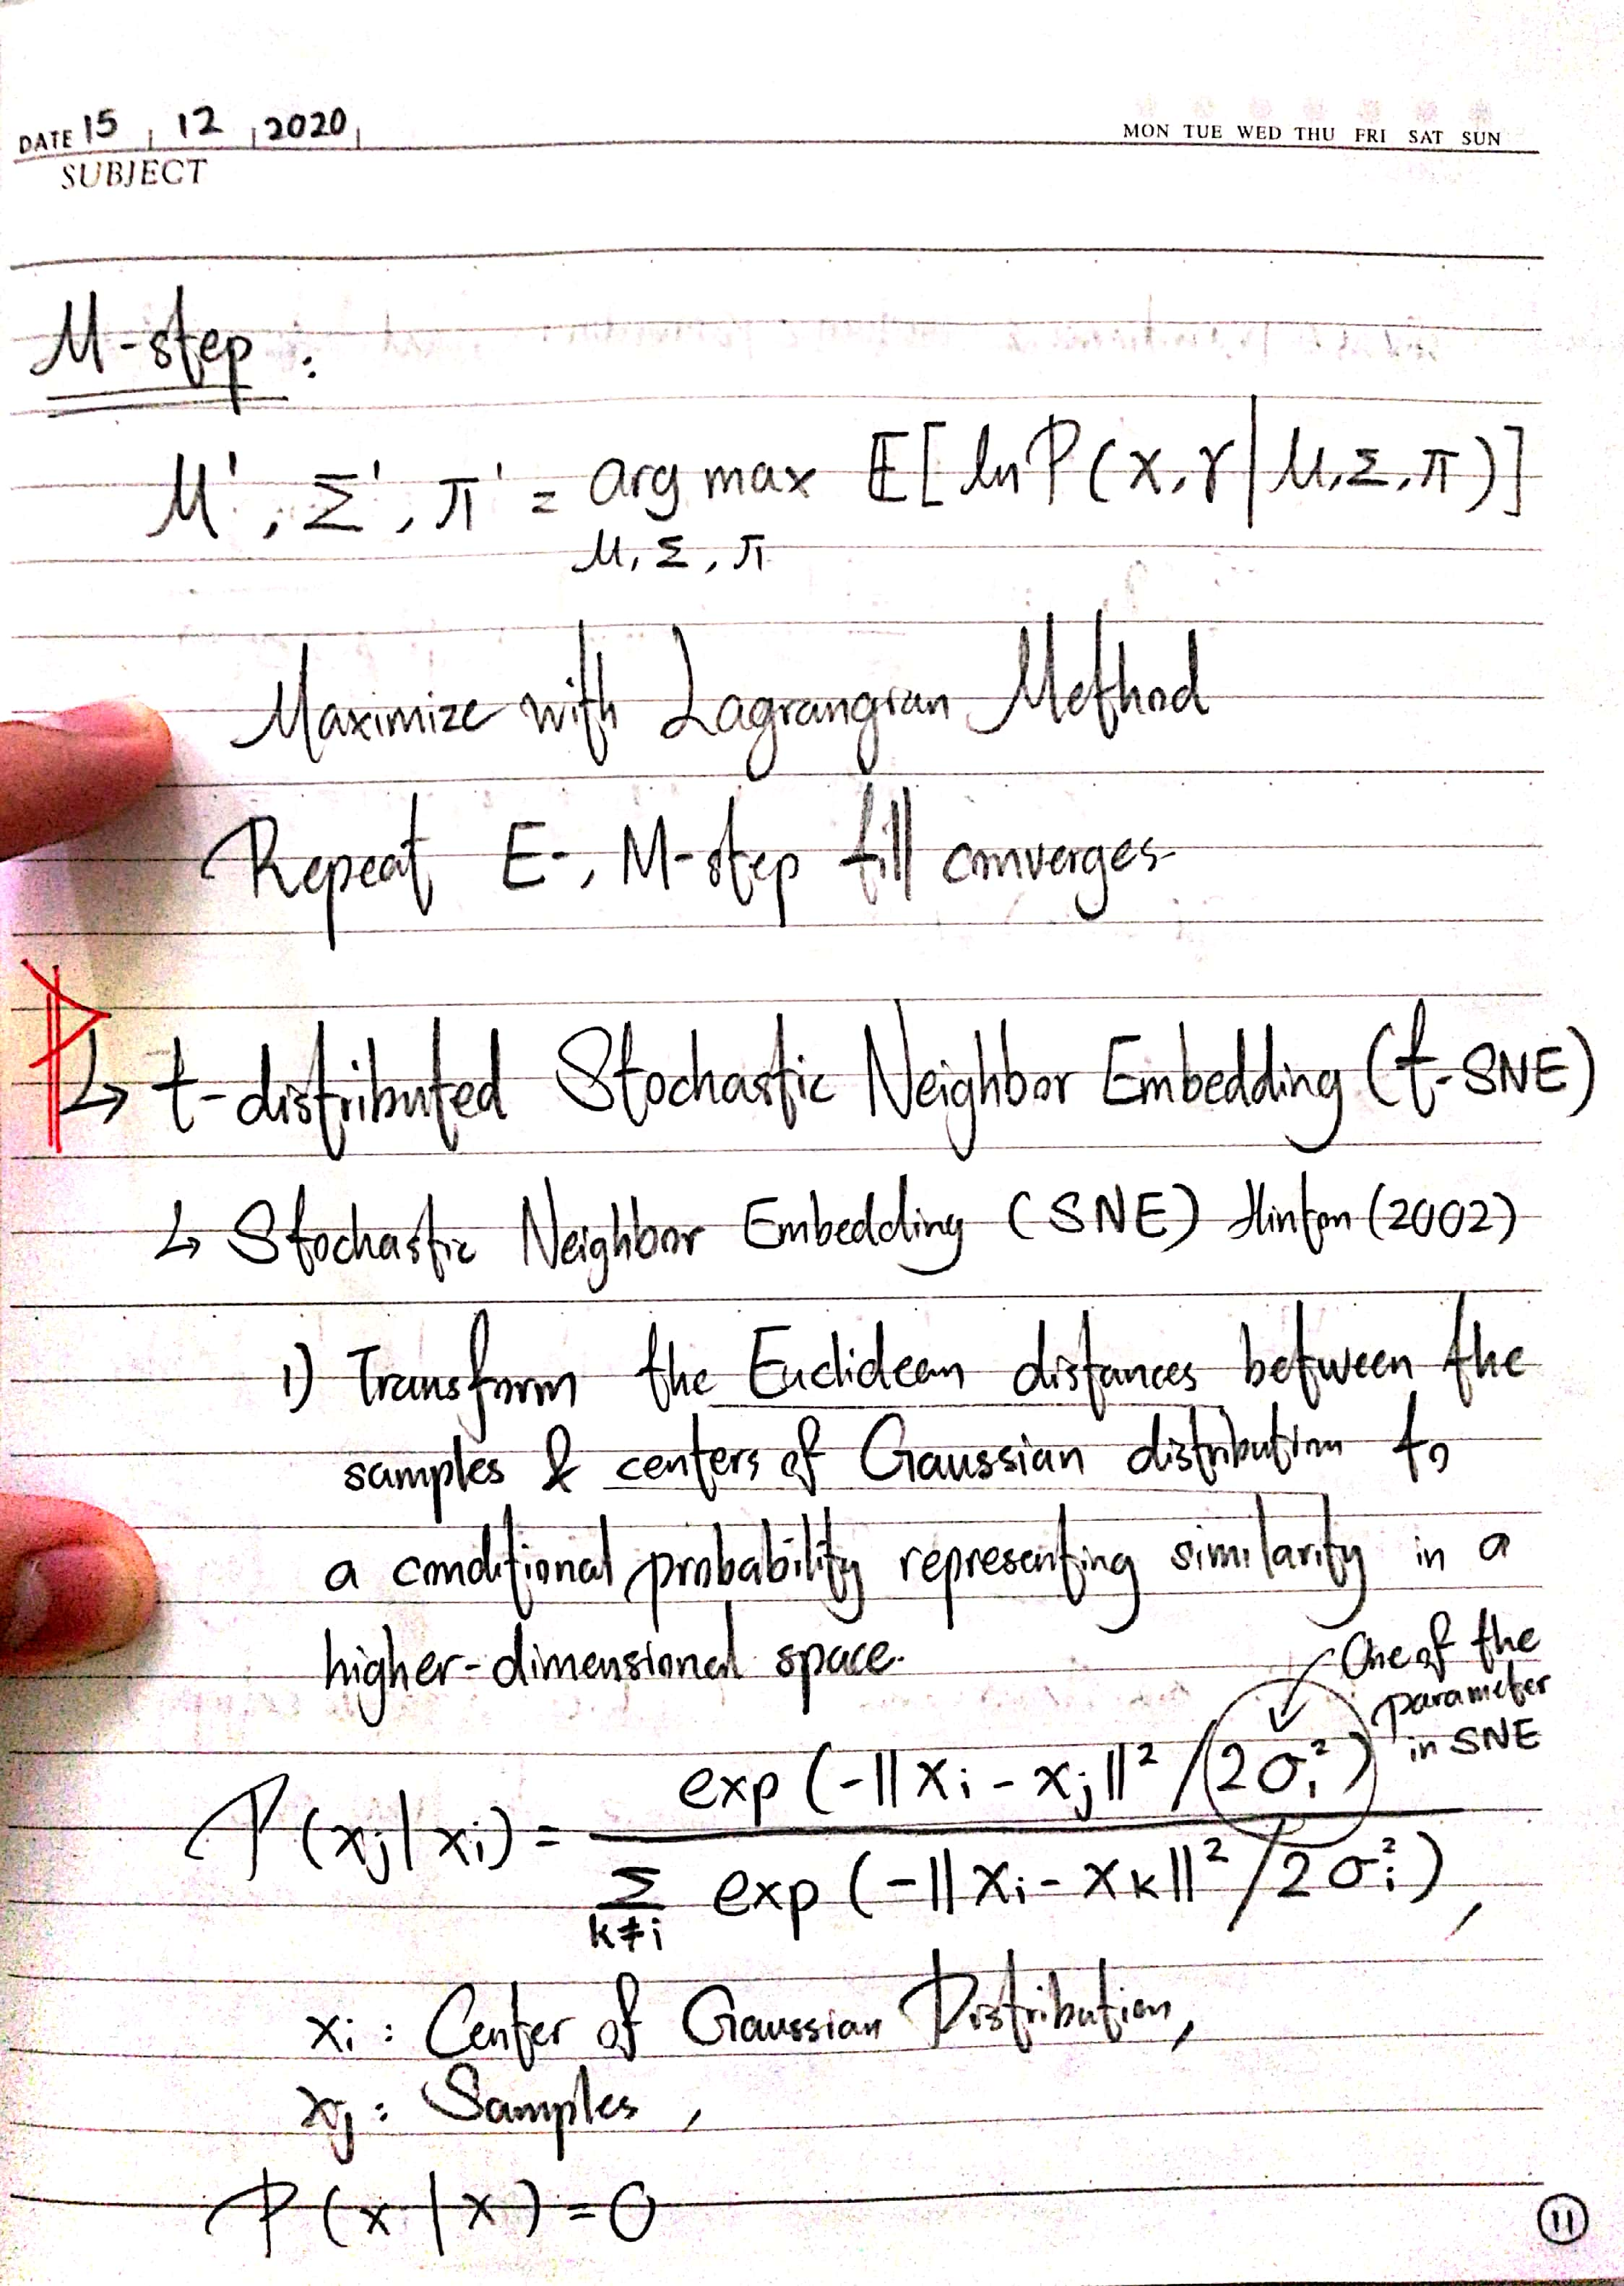 DATE 15 , 12 , 2020,
MON TUE WED THU FRI SAT SUN
SUBJECT
M-step :
μ', Σ', π' = arg max E[ ln P(x, γ | μ, Σ, π)]
μ, Σ, π
Maximize with Lagrangian Method
Repeat E-, M-step till converges
↳ t-distributed Stochastic Neighbor Embedding (t-SNE)
↳ Stochastic Neighbor Embedding (SNE) Hinton (2002)
1) Transform the Euclidean distances between the
samples & centers of Gaussian distribution to
a conditional probability representing similarity in a
higher-dimensional space.
One of the
parameter
in SNE
P(xj | xi) = exp(-||xi - xj||² / 2σi²)
Σ k≠i exp(-||xi - xk||² / 2σi²),
xi : Center of Gaussian Distribution,
xj : Samples,
P(x | x) = 0
11